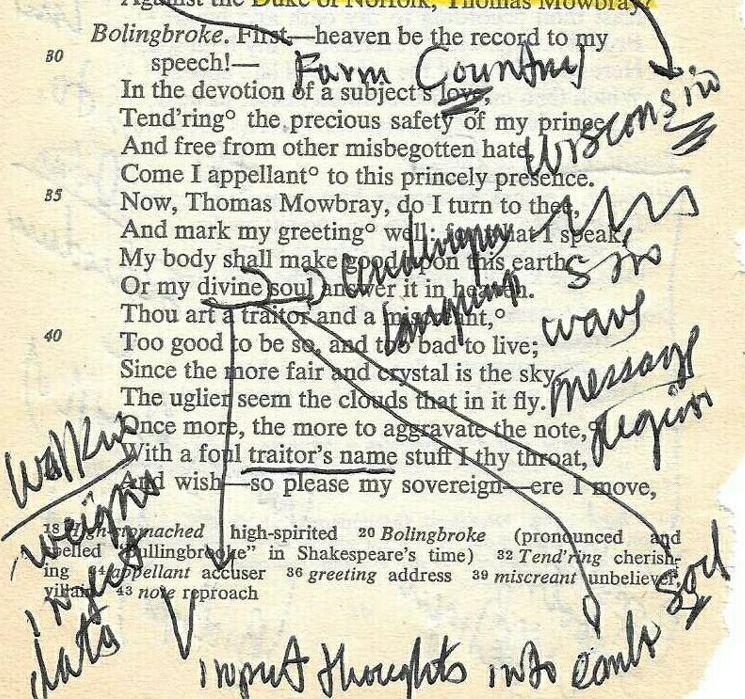 Against the Duke of Norfolk, Thomas Mowbray?
Bolingbroke. First—heaven be the record to my
30 speech!—
Farm Country
In the devotion of a subject's love,
Tend'ring° the precious safety of my prince
And free from other misbegotten hate
Wisconsin
Come I appellant° to this princely presence.
35 Now, Thomas Mowbray, do I turn to thee,
And mark my greeting° well; for what I speak
My body shall make good upon this earth
Or my divine soul answer it in heaven.
sin
Thou art a traitor and a miscreant,°
wave
40 Too good to be so, and too bad to live;
Since the more fair and crystal is the sky,
message
The uglier seem the clouds that in it fly.
Once more, the more to aggravate the note,°
With a foul traitor's name stuff I thy throat,
And wish—so please my sovereign—ere I move,
weighs
inject
data
18 High-stomached high-spirited 20 Bolingbroke (pronounced and
spelled "Bullingbrooke" in Shakespeare's time) 32 Tend'ring cherish-
ing 34 appellant accuser 36 greeting address 39 miscreant unbeliever,
villain 43 note reproach
input thoughts into